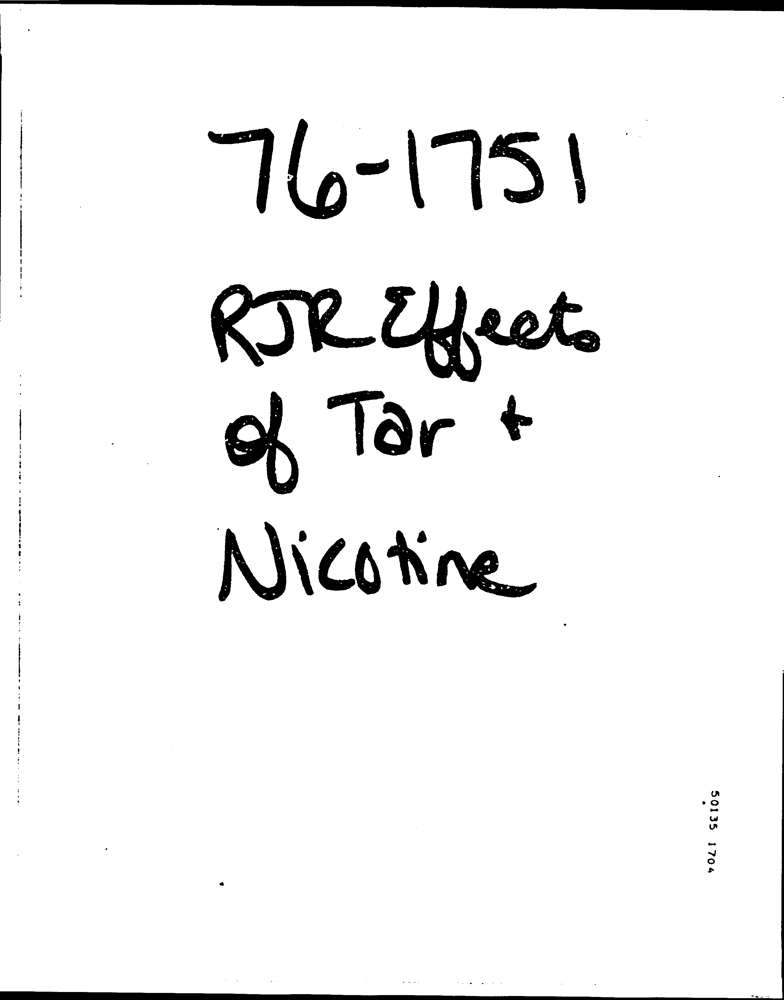 76-1751
RJR Effects
of Tar +
Nicotine
50135 1704